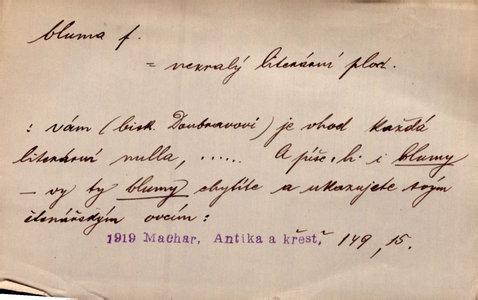 bluma f.
= nezralý literární plod.
: vám (bisk. Doubravovi) je vhod každá
literární nulla, ...... A píše-li i blumy
– vy ty blumy chytíte a ukazujete svým
čtenářským ovcím :
1919 Machar, Antika a křest, 149, 15.